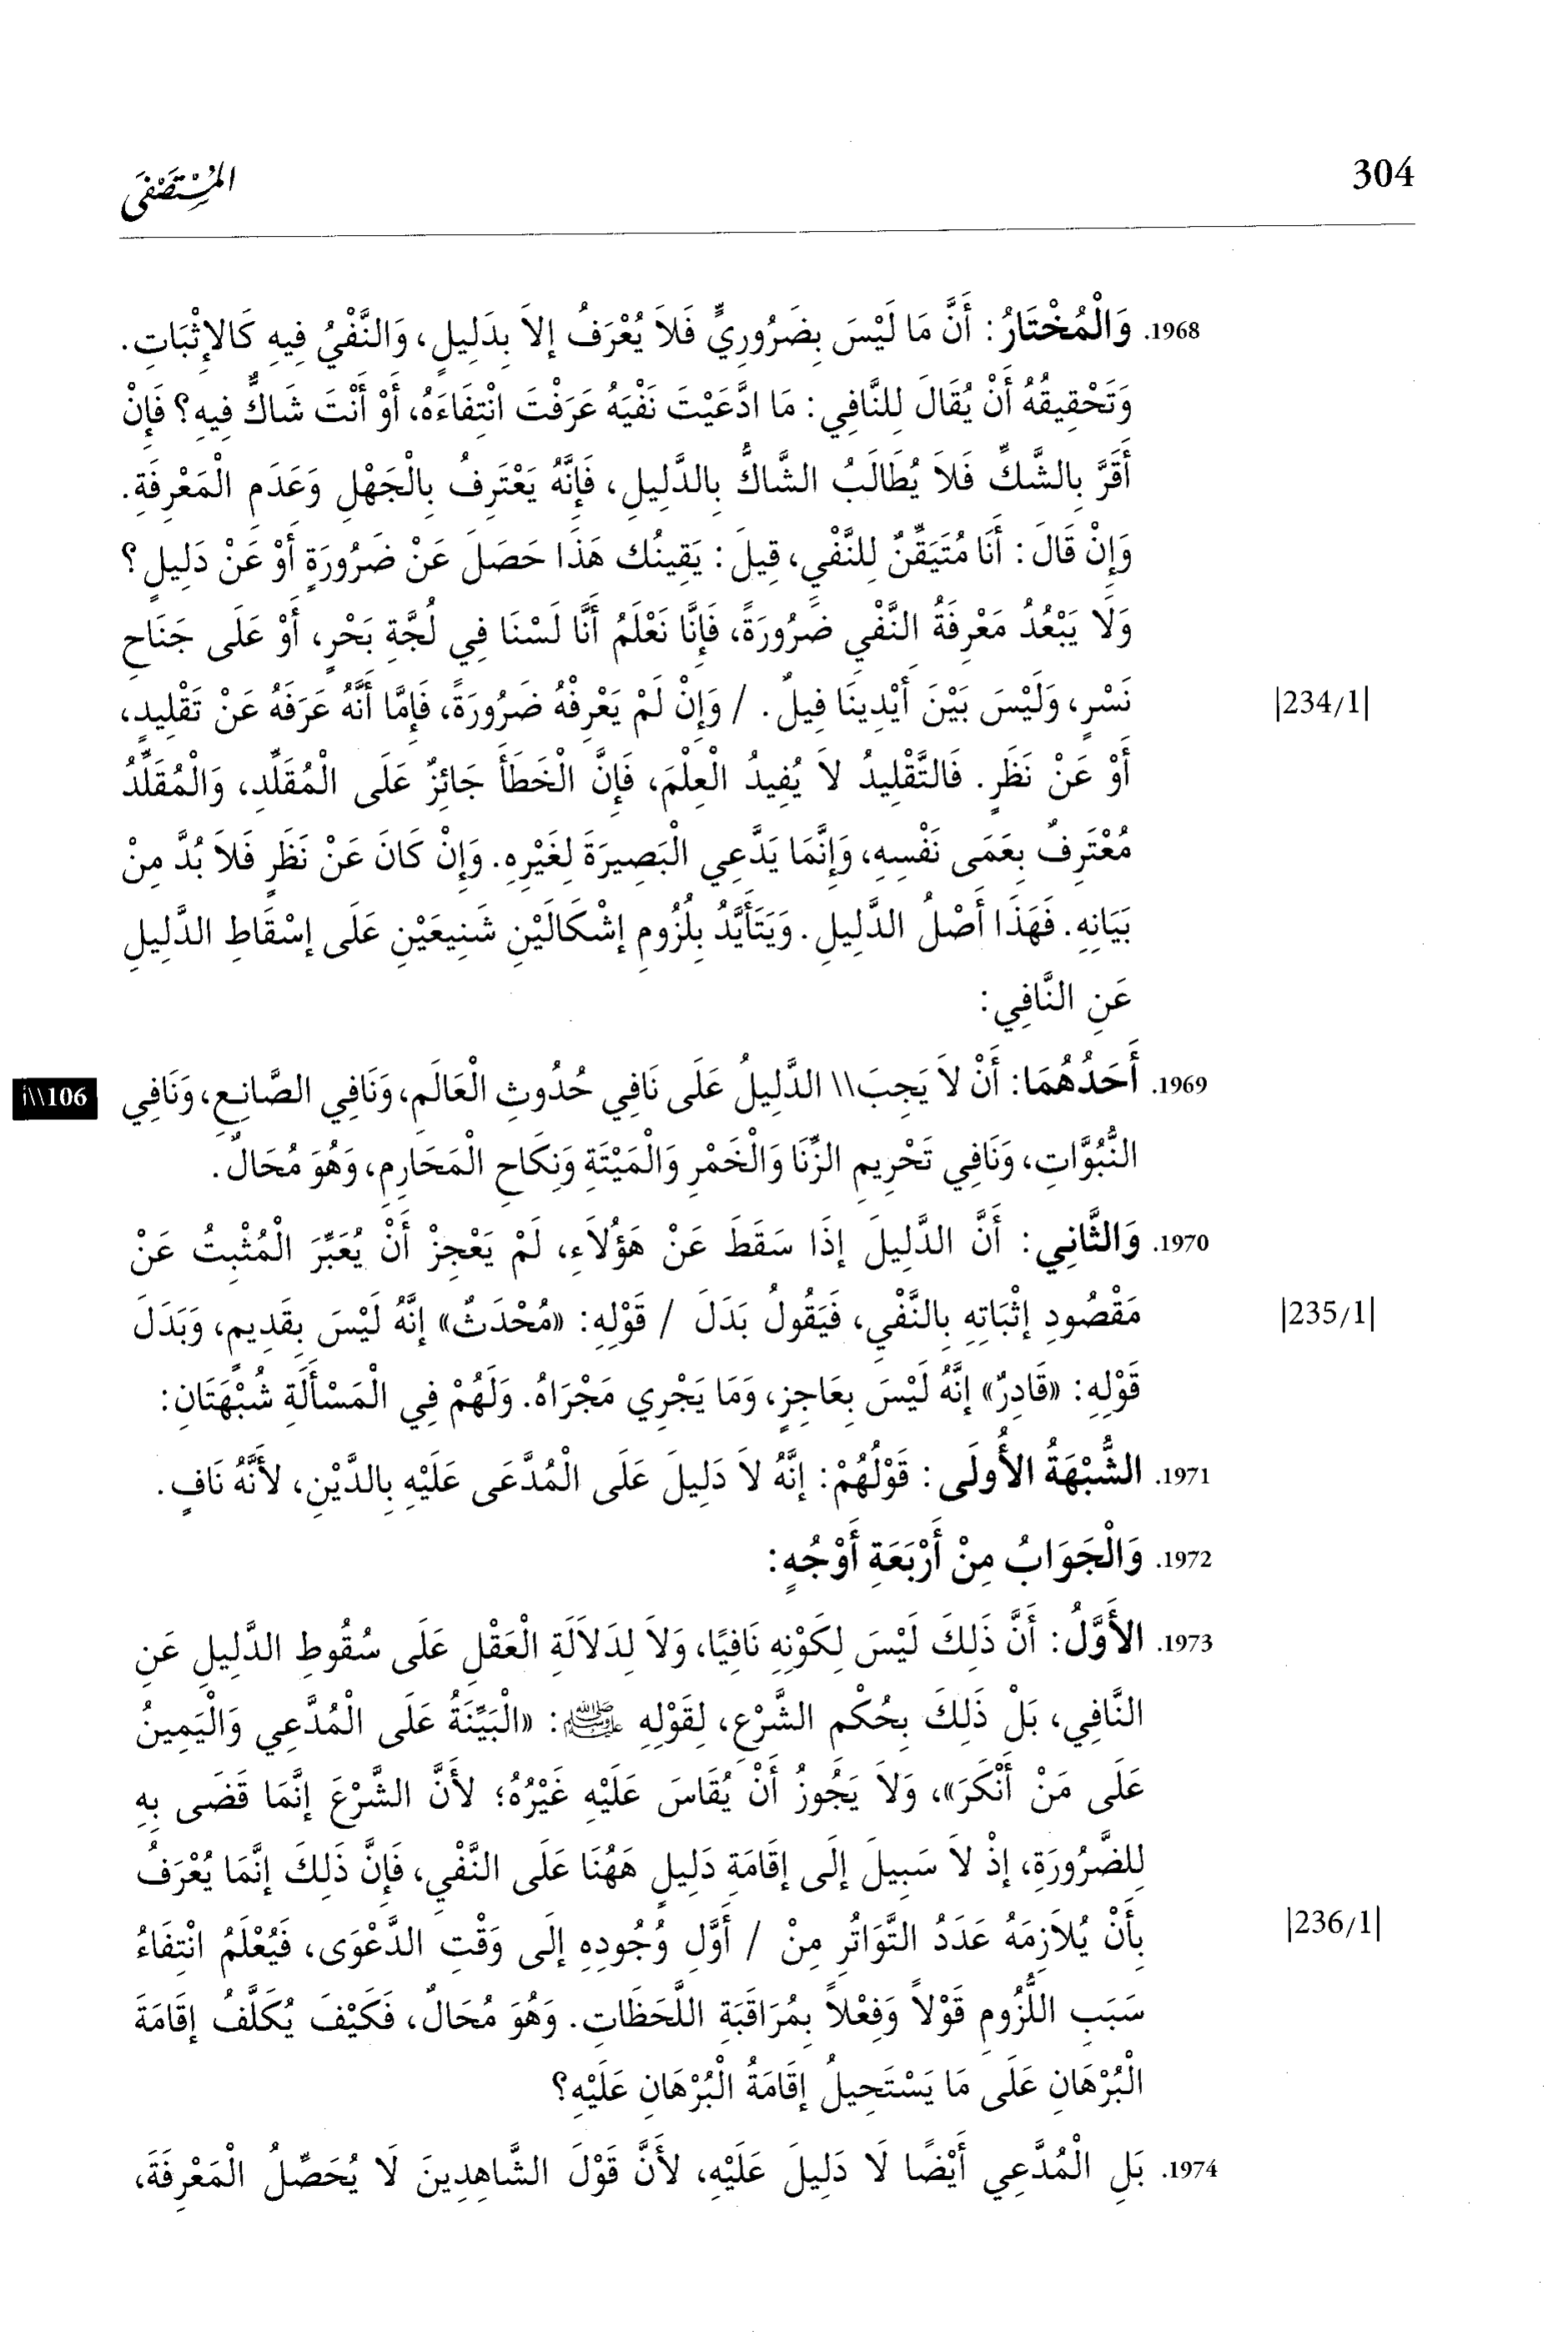 304
المُسْتَصْفَى
1968. وَالْمُخْتَارُ: أَنَّ مَا لَيْسَ بِضَرُورِيٍّ فَلاَ يُعْرَفُ إلاَ بِدَلِيلٍ، وَالنَّفْيُ فِيهِ كَالإِثْبَاتِ.
وَتَحْقِيقُهُ أَنْ يُقَالَ لِلنَّافِي: مَا ادَّعَيْتَ نَفْيَهُ عَرَفْتَ انْتِفَاءَهُ، أَوْ أَنْتَ شَاكٌّ فِيهِ؟ فَإِنْ
أَقَرَّ بِالشَّكِّ فَلاَ يُطَالَبُ الشَّاكُّ بِالدَّلِيلِ، فَإِنَّهُ يَعْتَرِفُ بِالْجَهْلِ وَعَدَمِ الْمَعْرِفَةِ.
وَإِنْ قَالَ: أَنَا مُتَيَقِّنٌ لِلنَّفْيِ، قِيلَ: يَقِينُك هَذَا حَصَلَ عَنْ ضَرُورَةٍ أَوْ عَنْ دَلِيلٍ؟
وَلَا يَبْعُدُ مَعْرِفَةُ النَّفْيِ ضَرُورَةً، فَإِنَّا نَعْلَمُ أَنَّا لَسْنَا فِي لُجَّةِ بَحْرٍ، أَوْ عَلَى جَنَاحِ
نَسْرٍ، وَلَيْسَ بَيْنَ أَيْدِينَا فِيلٌ. / وَإِنْ لَمْ يَعْرِفْهُ ضَرُورَةً، فَإِمَّا أَنَّهُ عَرَفَهُ عَنْ تَقْلِيدٍ، |234/1|
أَوْ عَنْ نَظَرٍ. فَالتَّقْلِيدُ لاَ يُفِيدُ الْعِلْمَ، فَإِنَّ الْخَطَأَ جَائِزٌ عَلَى الْمُقَلِّدِ، وَالْمُقَلِّدُ
مُعْتَرِفٌ بِعَمَى نَفْسِهِ، وَإِنَّمَا يَدَّعِي الْبَصِيرَةَ لِغَيْرِهِ. وَإِنْ كَانَ عَنْ نَظَرٍ فَلاَ بُدَّ مِنْ
بَيَانِهِ. فَهَذَا أَصْلُ الدَّلِيلِ. وَيَتَأَيَّدُ بِلُزُومِ إشْكَالَيْنِ شَنِيعَيْنِ عَلَى إسْقَاطِ الدَّلِيلِ
عَنِ النَّافِي:
1969. أَحَدُهُمَا: أَنْ لاَ يَجِبَ\\ الدَّلِيلُ عَلَى نَافِي حُدُوثِ الْعَالَمِ، وَنَافِي الصَّانِعِ، وَنَافِي 106\\أ
النُّبُوَّاتِ، وَنَافِي تَحْرِيمِ الزِّنَا وَالْخَمْرِ وَالْمَيْتَةِ وَنِكَاحِ الْمَحَارِمِ، وَهُوَ مُحَالٌ.
1970. وَالثَّانِي: أَنَّ الدَّلِيلَ إذَا سَقَطَ عَنْ هَؤُلَاءِ، لَمْ يَعْجِزْ أَنْ يُعَبِّرَ الْمُثْبِتُ عَنْ
مَقْصُودِ إثْبَاتِهِ بِالنَّفْيِ، فَيَقُولُ بَدَلَ / قَوْلِهِ: «مُحْدَثٌ» إنَّهُ لَيْسَ بِقَدِيمٍ، وَبَدَلَ |235/1|
قَوْلِهِ: «قَادِرٌ» إنَّهُ لَيْسَ بِعَاجِزٍ، وَمَا يَجْرِي مَجْرَاهُ. وَلَهُمْ فِي الْمَسْأَلَةِ شُبْهَتَانِ:
1971. الشُّبْهَةُ الأُولَى: قَوْلُهُمْ: إنَّهُ لاَ دَلِيلَ عَلَى الْمُدَّعَى عَلَيْهِ بِالدَّيْنِ، لأَنَّهُ نَافٍ.
1972. وَالْجَوَابُ مِنْ أَرْبَعَةِ أَوْجُهٍ:
1973. الأَوَّلُ: أَنَّ ذَلِكَ لَيْسَ لِكَوْنِهِ نَافِيًا، وَلاَ لِدَلاَلَةِ الْعَقْلِ عَلَى سُقُوطِ الدَّلِيلِ عَنِ
النَّافِي، بَلْ ذَلِكَ بِحُكْمِ الشَّرْعِ، لِقَوْلِهِ ﷺ: «الْبَيِّنَةُ عَلَى الْمُدَّعِي وَالْيَمِينُ
عَلَى مَنْ أَنْكَرَ»، وَلاَ يَجُوزُ أَنْ يُقَاسَ عَلَيْهِ غَيْرُهُ؛ لأَنَّ الشَّرْعَ إنَّمَا قَضَى بِهِ
لِلضَّرُورَةِ، إذْ لاَ سَبِيلَ إلَى إقَامَةِ دَلِيلٍ هَهُنَا عَلَى النَّفْيِ، فَإِنَّ ذَلِكَ إنَّمَا يُعْرَفُ
بِأَنْ يُلاَزِمَهُ عَدَدُ التَّوَاتُرِ مِنْ / أَوَّلِ وُجُودِهِ إلَى وَقْتِ الدَّعْوَى، فَيُعْلَمُ انْتِفَاءُ |236/1|
سَبَبِ اللُّزُومِ قَوْلاً وَفِعْلاً بِمُرَاقَبَةِ اللَّحَظَاتِ. وَهُوَ مُحَالٌ، فَكَيْفَ يُكَلَّفُ إقَامَةَ
الْبُرْهَانِ عَلَى مَا يَسْتَحِيلُ إقَامَةُ الْبُرْهَانِ عَلَيْهِ؟
1974. بَلِ الْمُدَّعِي أَيْضًا لَا دَلِيلَ عَلَيْهِ، لأَنَّ قَوْلَ الشَّاهِدِينَ لَا يُحَصِّلُ الْمَعْرِفَةَ،